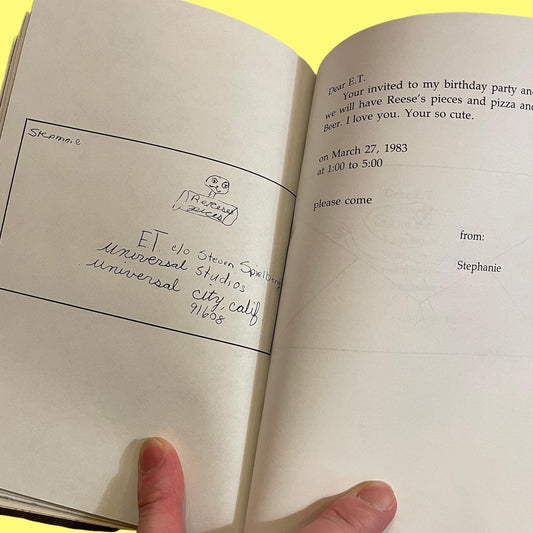 Stepnnie
Reeses
pieces
E.T. c/o Steven Spielberg
universal Studios
universal city, calif
91608
Dear E.T.
Your invited to my birthday party and
we will have Reese's pieces and pizza and
Beer. I love you. Your so cute.
on March 27, 1983
at 1:00 to 5:00
please come
from:
Stephanie